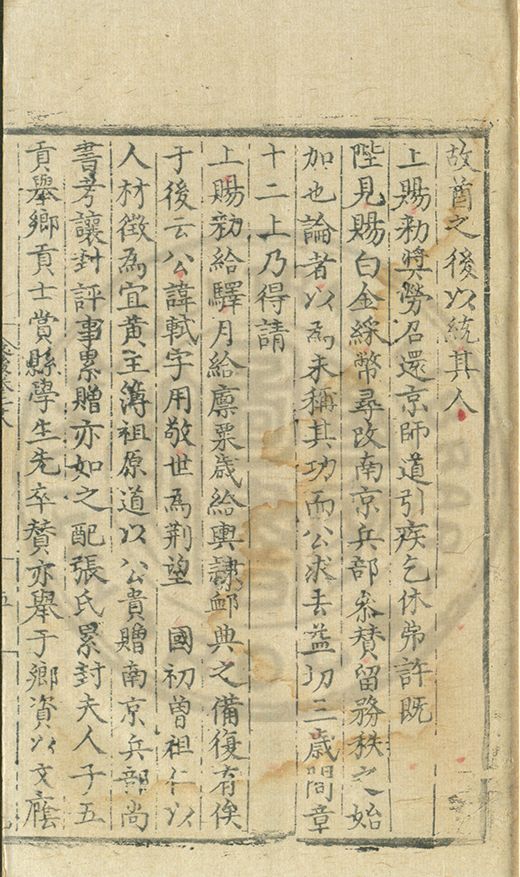 故酋之後以統其人
上賜勑奨勞召還京師道引疾乞休弗許既
陛見賜白金綵幣尋改南京兵部叅賛留務秩之始
加也論者以為未稱其功而公求去益切三歲間章
十二上乃得請
上賜勑給驛月給廪粟歲給輿隷䘏典之備復有俟
于後云公諱軾字用敬世為荆望 國初曽祖仁以
人材徵為宜黄主簿祖原道以公貴贈南京兵部尚
書考讓封評事累贈亦如之配張氏累封夫人子五
貢舉鄉貢士賞縣學生先卒賛亦舉于鄉資以文廕